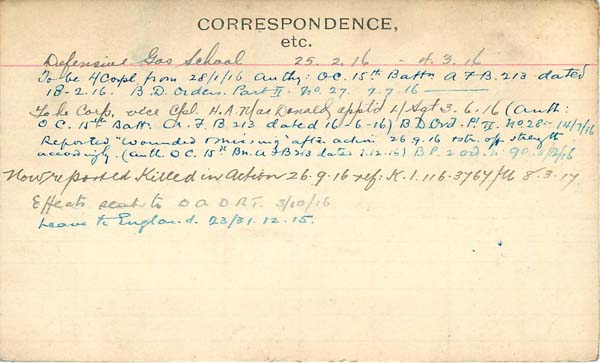 CORRESPONDENCE,
etc.
Defensive Gas School 25.2.16 - 4.3.16
To be L/Corpl from 28/1/16 Authy: O.C. 15th Battn A.F.B. 213 dated
18-2.16. B.D. Orders. Part II. No. 27. 7.7.16
To be Corp, vice Cpl. H.A. MacDonald appt'd L/Sgt 3.6.16 (Auth:
O C. 15th Batt. A. F B. 213 dated 16-6-16) B D Ord. Pt. II. No 28 - 14/7/16
Reported "Wounded & missing" after action 26.9.16 off strength
accordingly. (Auth. O.C. 15th Bn. A.F.B 213 dated 1.12.16)
Now reported Killed in Action 26.9.16 ref: K.1.116.3767 8.3.17.
Effects sent to D A D R T. 3/10/16
Leave to England. 23/31.12.15.